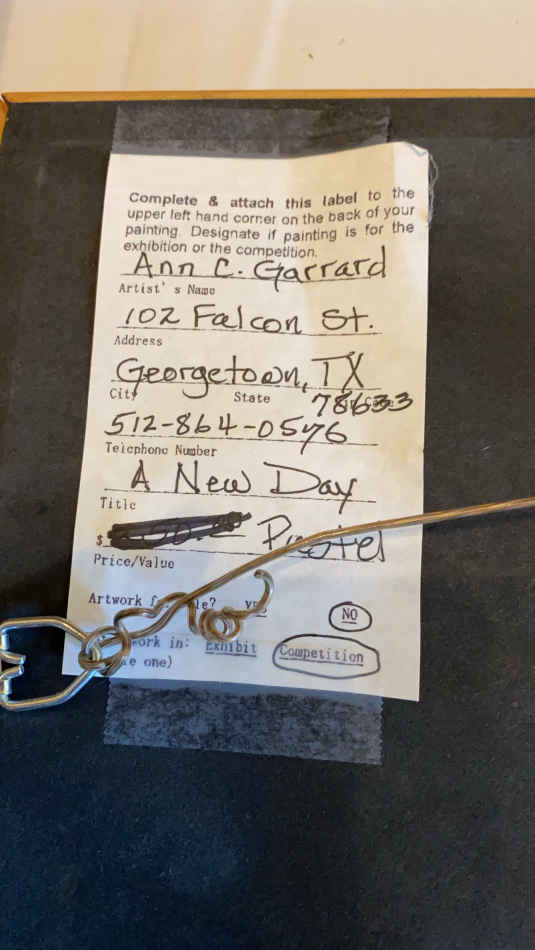 Complete & attach this label to the
upper left hand corner on the back of your
painting. Designate if painting is for the
exhibition or the competition.
Ann C. Garrard
Artist's Name
102 Falcon St.
Address
Georgetown, TX
City State
78633
512-864-0576
Telephone Number
A New Day
Title
$ Pastel
Price/Value
Artwork
NO
in: Exhibit Competition
one)